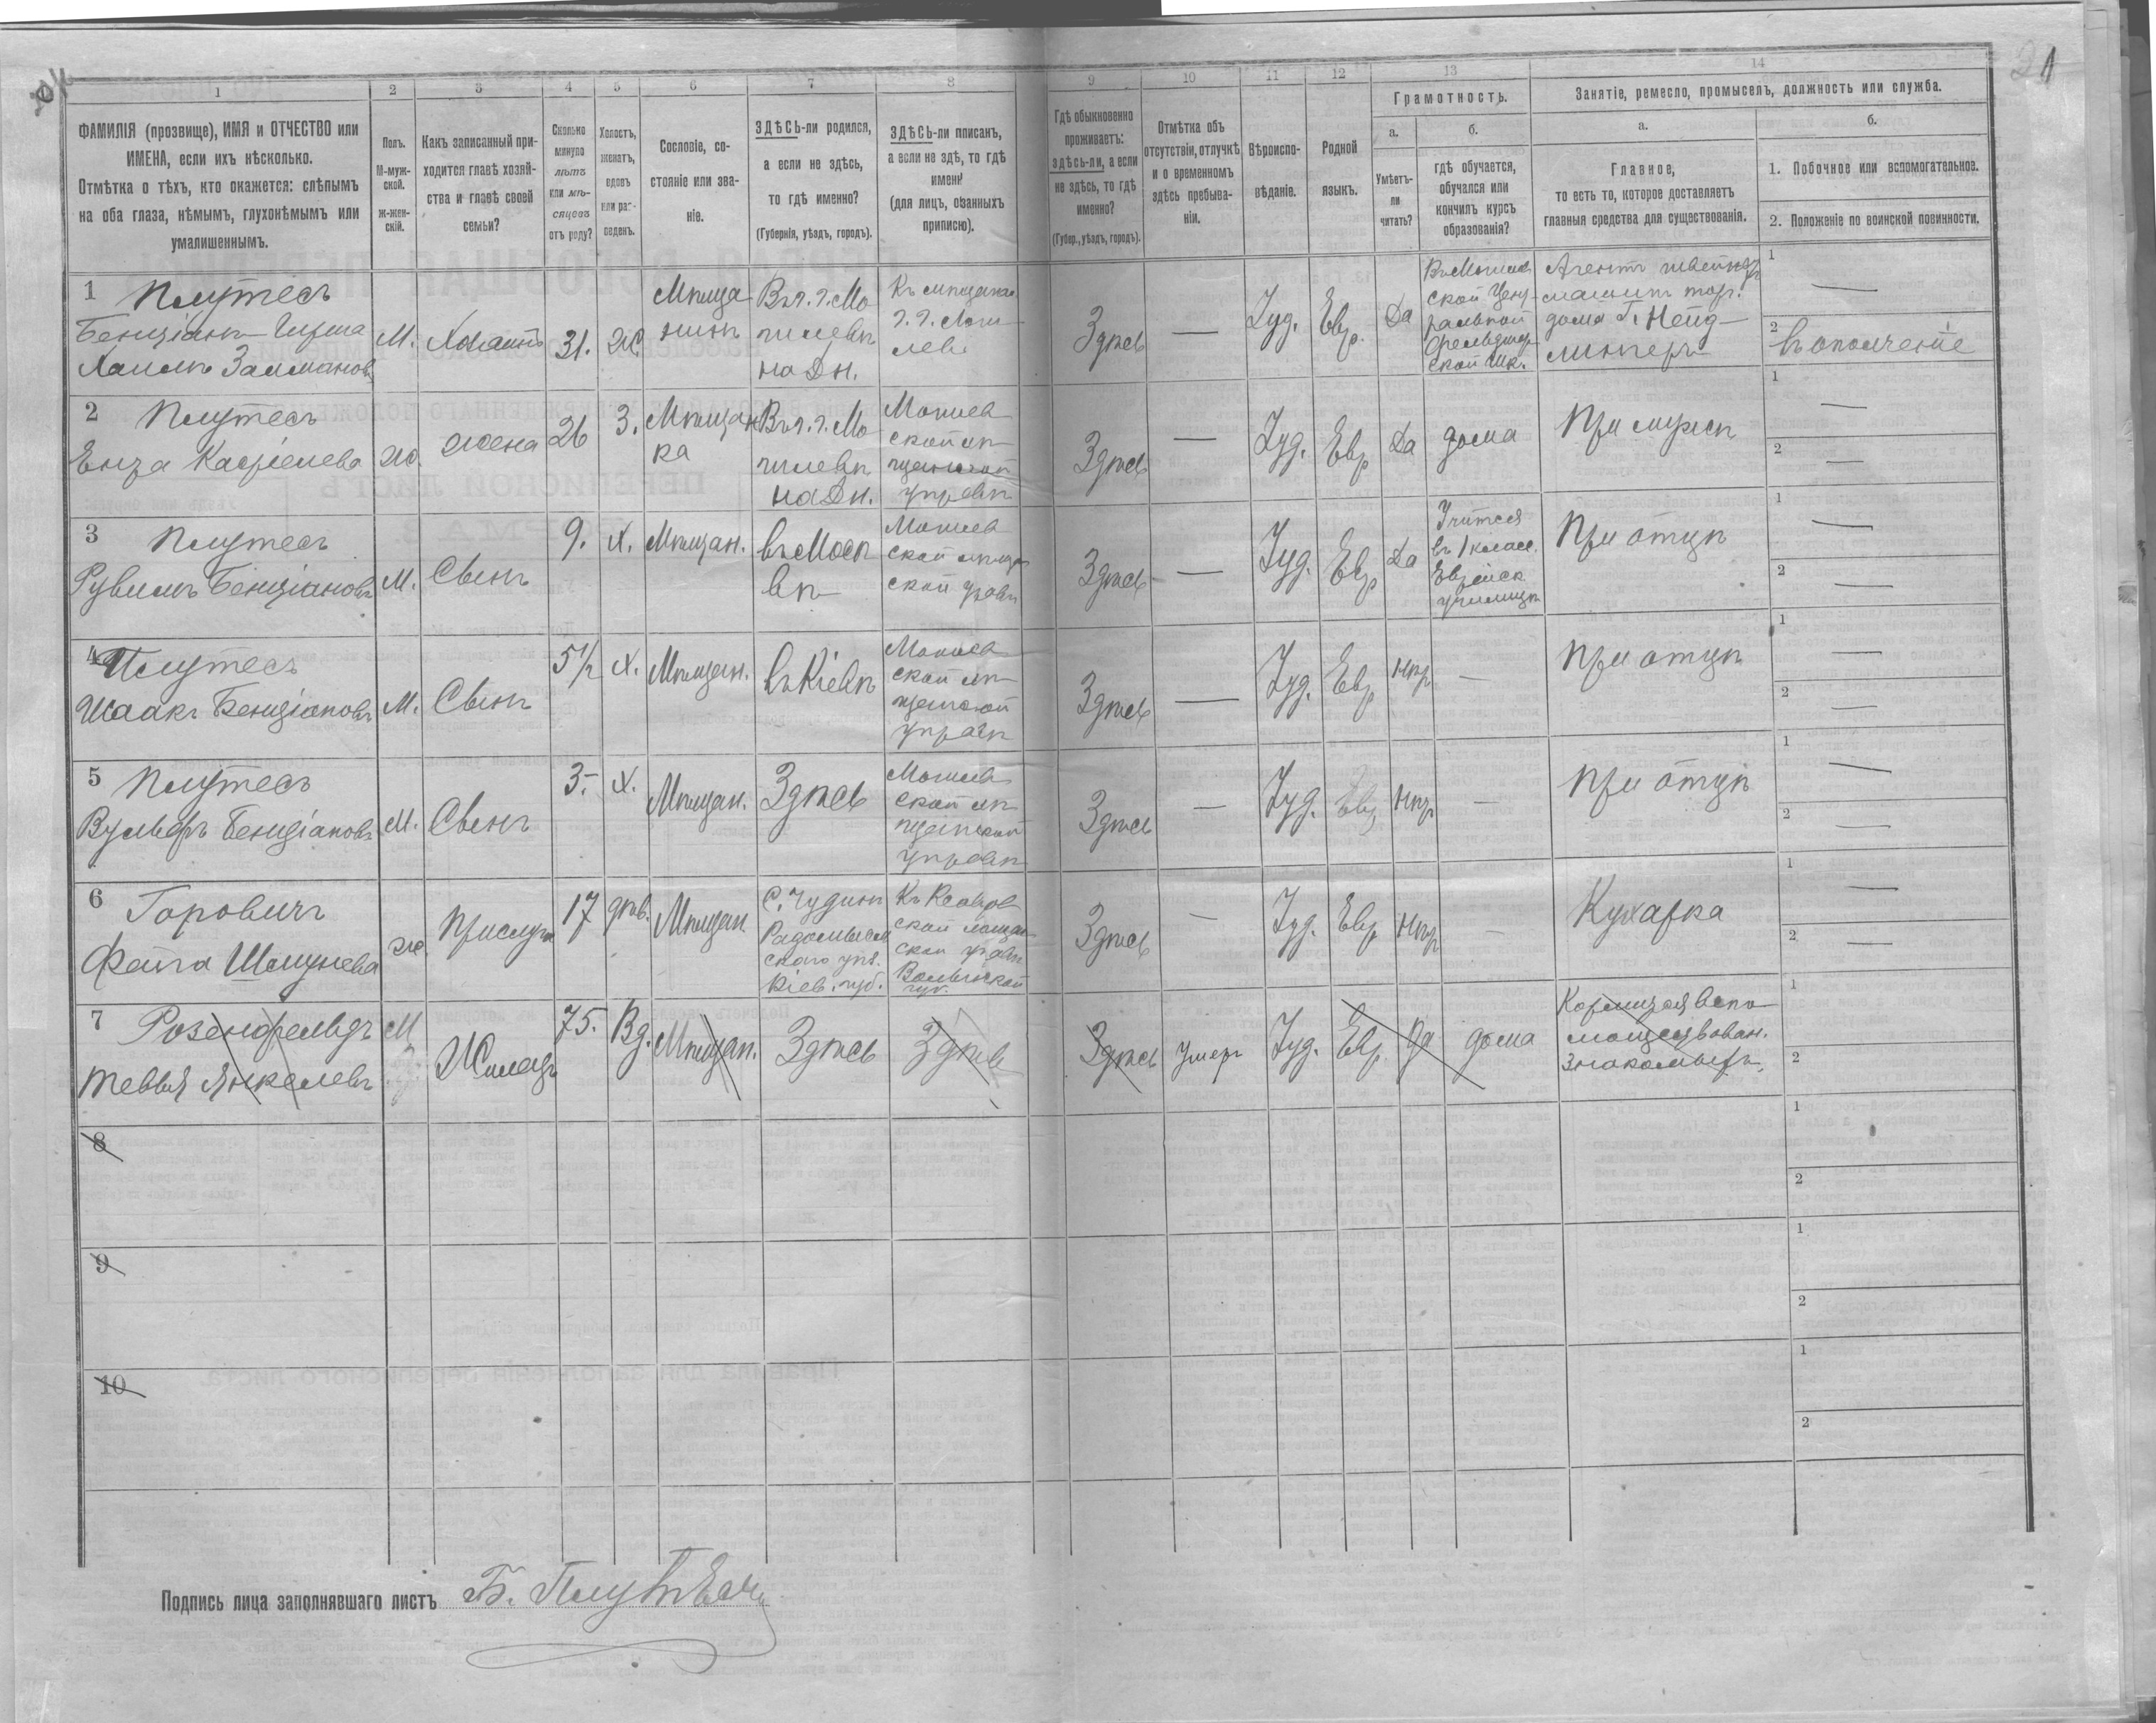 21
1
2
3
4
5
6
7
8
9
10
11
12
13
14
ФАМИЛІЯ (прозвище), ИМЯ и ОТЧЕСТВО или
ИМЕНА, если ихъ нѣсколько.
Отмѣтка о тѣхъ, кто окажется: слѣпымъ
на оба глаза, нѣмымъ, глухонѣмымъ или
умалишеннымъ.
Полъ.
М-муж-
ской.
ж-жен-
скій.
Какъ записанный при-
ходится главѣ хозяй-
ства и главѣ своей
семьи?
Сколько
минуло
лѣтъ
или мѣ-
сяцевъ
отъ роду?
Холостъ,
женатъ,
вдовъ
или раз-
веденъ.
Сословіе, со-
стояніе или зва-
ніе.
ЗДѢСЬ-ли родился,
а если не здѣсь,
то гдѣ именно?
(Губернія, уѣздъ, городъ).
ЗДѢСЬ-ли приписанъ,
а если не здѣсь, то гдѣ
именно?
(для лицъ, обязанныхъ
припискою).
Гдѣ обыкновенно
проживаетъ:
здѣсь-ли, а если
не здѣсь, то гдѣ
именно?
(Губер., уѣздъ, городъ).
Отмѣтка объ
отсутствіи, отлучкѣ
и о временномъ
здѣсь пребыва-
ніи.
Вѣроиспо-
вѣданіе.
Родной
языкъ.
Грамотность.
а.
б.
Умѣетъ-
ли
читать?
гдѣ обучается,
обучался или
кончилъ курсъ
образованія?
Занятіе, ремесло, промыселъ, должность или служба.
а.
б.
Главное,
то есть то, которое доставляетъ
главныя средства для существованія.
1. Побочное или вспомогательное.
2. Положеніе по воинской повинности.
1 Плутесъ
Бенціанъ Гирша
Хаимъ Залмановъ
М.
Хозяинъ
31.
Ж.
Мѣща
нинъ
Въ г. г. Мо
гилевѣ
на Дн.
Къ мѣщанам
г. г. Моги
лева
Здѣсь
—
Іуд.
Евр.
Да
Въ Могилев
ской Цент
ральной
Фельдшер
ской шк.
Агентъ швейныхъ
машинъ тор.
дома Г. Нейд-
лингеръ
1 —
2 въ ополченіе
2 Плутесъ
Ента Касріелева
Ж.
жена
26
З.
Мѣщан
ка
Въ г. г. Мо
гилевѣ
на Дн.
Могилев
ской мѣ
щанской
управѣ
Здѣсь
—
Іуд.
Евр
Да
дома
При мужѣ
1 —
2 —
3 Плутесъ
Рувимъ Бенціановъ
М.
Сынъ
9.
Х.
Мѣщан.
въ Моск
вѣ
Могилев
ской мѣщан
ской управѣ
Здѣсь
—
Іуд.
Евр
Да
Учится
въ 1 класс.
Еврейск
училищѣ
При отцѣ
1 —
2 —
4 Плутесъ
Исаакъ Бенціановъ
М.
Сынъ
5 1/2
Х.
Мѣщан.
въ Кіевѣ
Могилев
ской мѣ
щанской
управѣ
Здѣсь
—
Іуд.
Евр
Нѣт
—
При отцѣ
1 —
2 —
5 Плутесъ
Вульфъ Бенціановъ
М.
Сынъ
3.
Х.
Мѣщан.
Здѣсь
Могилев
ской мѣ
щанской
управѣ
Здѣсь
—
Іуд.
Евр
Нѣт
—
При отцѣ
1 —
2 —
6 Горовичъ
Фейга Шмулева
Ж.
Прислуга
17
дѣв.
Мѣщан.
С. Чудинъ
Радомысль
скаго уѣз.
Кіев. губ.
Здѣсь
—
Іуд.
Евр
Нѣт
—
Кухарка
1 —
2 —
7 Розенфельдъ
Тевья Янкелевъ
М
Жилецъ
75.
Вд.
Мѣщан.
Здѣсь
Здѣсь
Здѣсь
Умеръ
Іуд.
Евр.
Да
дома
Кормился вспо
моществован.
знакомыхъ.
1
2
8
1
2
9
1
2
10
1
2
Подпись лица заполнявшаго листъ Б. Плутесъ